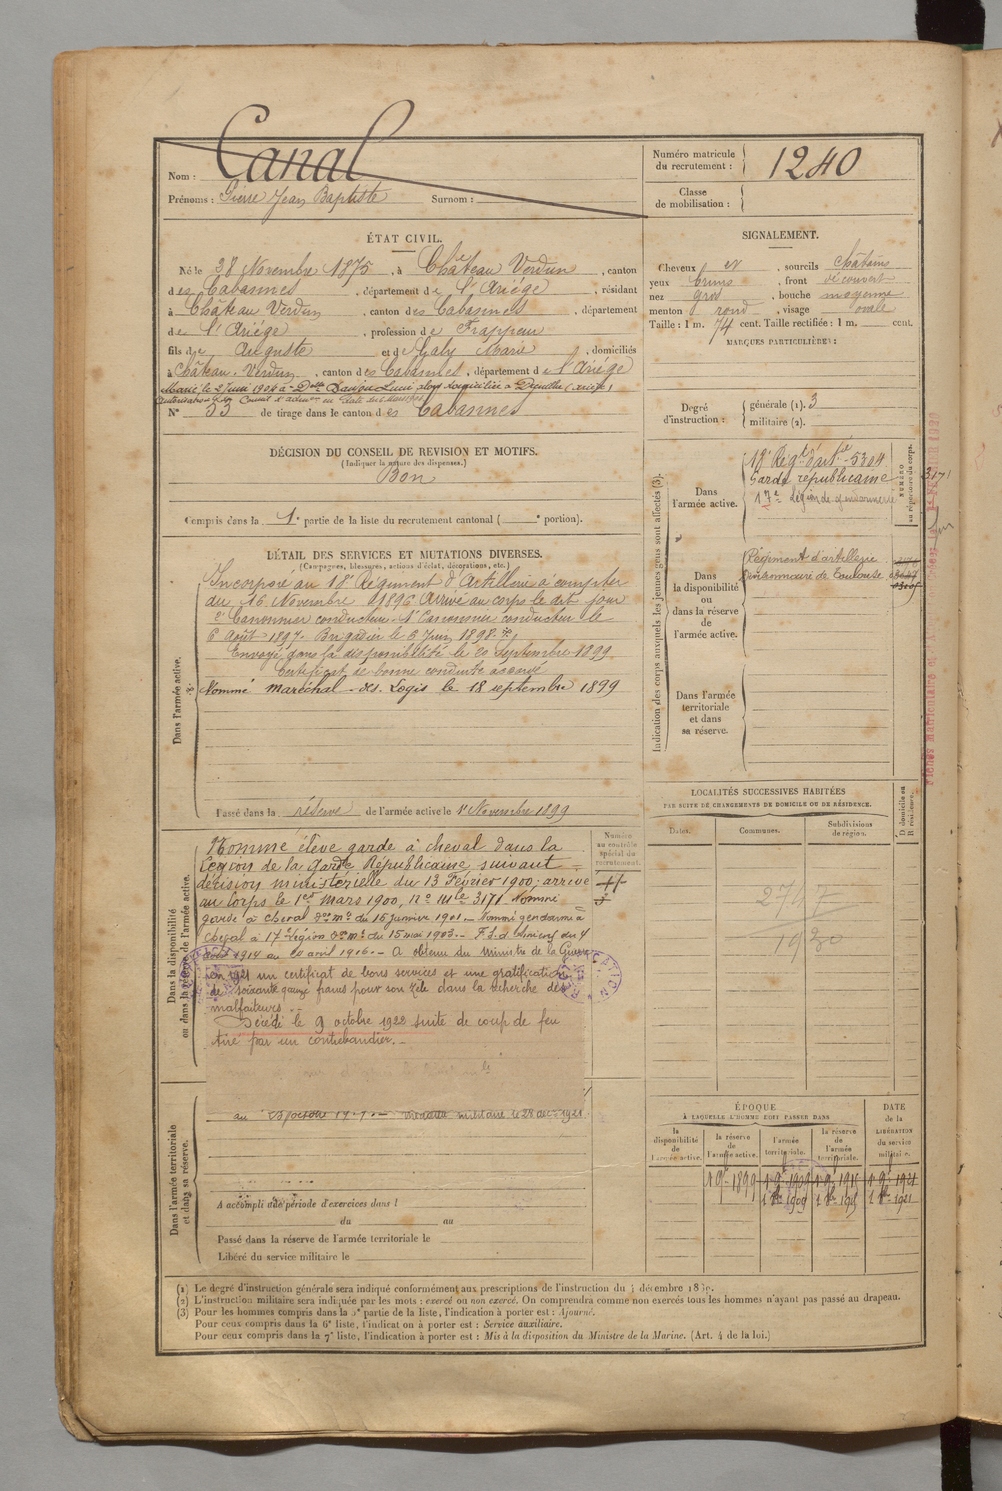 Canal
Nom :
Prénoms : Pierre Jean Baptiste Surnom :
Numéro matricule du recrutement : 1240
Classe de mobilisation :
ÉTAT CIVIL.
Né le 28 Novembre 1875, à Château Verdun, canton
des Cabannes, département de l'Ariége, résidant
à Château Verdun, canton des Cabannes, département
de l'Ariége, profession de Frappeur
fils de Auguste et de Galy Marie, domiciliés
à Château-Verdun, canton des Cabannes, département de l'Ariége
Marié le 2 Juin 1904 à Delle
N° 33 de tirage dans le canton des Cabannes
SIGNALEMENT.
Cheveux et, sourcils châtains
yeux bruns, front découvert
nez gros, bouche moyenne
menton rond, visage ovale
Taille : 1 m. 74 cent. Taille rectifiée : 1 m. cent.
MARQUES PARTICULIÈRES :
Degré d'instruction : générale (1). 3
militaire (2).
DÉCISION DU CONSEIL DE REVISION ET MOTIFS.
(Indiquer la nature des dispenses.)
Bon
Compris dans la 1e partie de la liste du recrutement cantonal ( e portion).
DÉTAIL DES SERVICES ET MUTATIONS DIVERSES.
(Campagnes, blessures, actions d'éclat, décorations, etc.)
Dans l'armée active.
Incorporé au 18e Régiment d'Artillerie à compter
du 16 Novembre 1896 Arrivé au corps le dit jour
2e Canonnier conducteur. 1er Canonnier conducteur le
6 Août 1897. Brigadier le 6 Juin 1898.
Envoyé dans la disponibilité le 20 Septembre 1899
Certificat de bonne conduite accordé
Nommé maréchal-des-Logis le 18 septembre 1899
Passé dans la réserve de l'armée active le 1er Novembre 1899
Dans la disponibilité ou dans la réserve de l'armée active.
Nommé élève garde à cheval dans la
Légion de la Garde Républicaine suivant
décision ministérielle du 13 Février 1900; arrivé
au corps le 1er mars 1900, no mle 3171 Nommé
garde à cheval don mlle du 16 janvier 1901. Nommé gendarme à
cheval à 17e légion don mlle du 15 mai 1903.
A obtenu du ministre de la Guerre
un certificat de bons services et une gratification
de soixante quinze francs pour son zèle dans la recherche des
malfaiteurs.
Décédé le 9 octobre 1922 suite de coup de feu
tiré par un contrebandier.
militaire le 28 déc 1921
Numéro au contrôle spécial du recrutement.
Dans l'armée territoriale et dans sa réserve.
A accompli une période d'exercices dans l
du au
Passé dans la réserve de l'armée territoriale le
Libéré du service militaire le
Indication des corps auxquels les jeunes gens sont affectés (3).
Dans l'armée active.
18e Régt d'artie 5304
Garde républicaine
17e Légion de gendarmerie
NUMÉRO au répertoire du corps.
3171
Dans la disponibilité ou dans la réserve de l'armée active.
Régiment d'artillerie
de Toulouse
Dans l'armée territoriale et dans sa réserve.
LOCALITÉS SUCCESSIVES HABITÉES
PAR SUITE DE CHANGEMENTS DE DOMICILE OU DE RÉSIDENCE.
D. domicile ou R. résidence.
Dates. Communes. Subdivisions de région.
2747
1930
ÉPOQUE
À LAQUELLE L'HOMME DOIT PASSER DANS
DATE de la LIBÉRATION du service militaire.
la disponibilité de l'armée active.
la réserve de l'armée active.
l'armée territoriale.
la réserve de l'armée territoriale.
(1) Le degré d'instruction générale sera indiqué conformément aux prescriptions de l'instruction du 4 décembre 1889.
(2) L'instruction militaire sera indiquée par les mots : exercé ou non exercé. On comprendra comme non exercés tous les hommes n'ayant pas passé au drapeau.
(3) Pour les hommes compris dans la 5e partie de la liste, l'indication à porter est : Ajourné.
Pour ceux compris dans la 6e liste, l'indication à porter est : Service auxiliaire.
Pour ceux compris dans la 7e liste, l'indication à porter est : Mis à la disposition du Ministre de la Marine. (Art. 4 de la loi.)